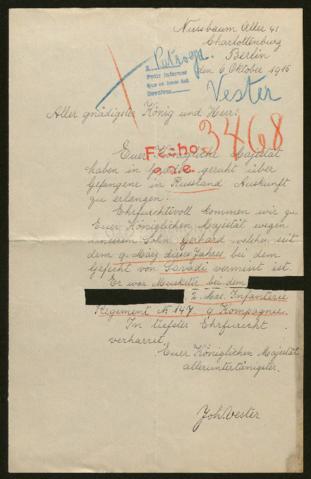 Nussbaum Allee 41
Charlottenburg
Berlin
den 6 Oktober 1916
Petrogr.
Vester
Aller gnädigster König und Herr!
3468
Euer Königliche Majestät
haben in geruht über
Gefangene in Russland Auskunft
zu erlangen:
Ehrfurchtvoll kommen wir zu
Euer Königlichen Majestät wegen
unserem Sohn Gerhard welcher seit
dem 9. März dieses Jahres bei dem
Gefecht von vermisst ist.
Er war Musketier bei dem
2. Mas. Infanterie
Regiment No 147 9 Kompagnie.
In tiefster Ehrfurcht
verharret
Euer Königlichen Majestät
alleruntertänigster.
Joh Vester